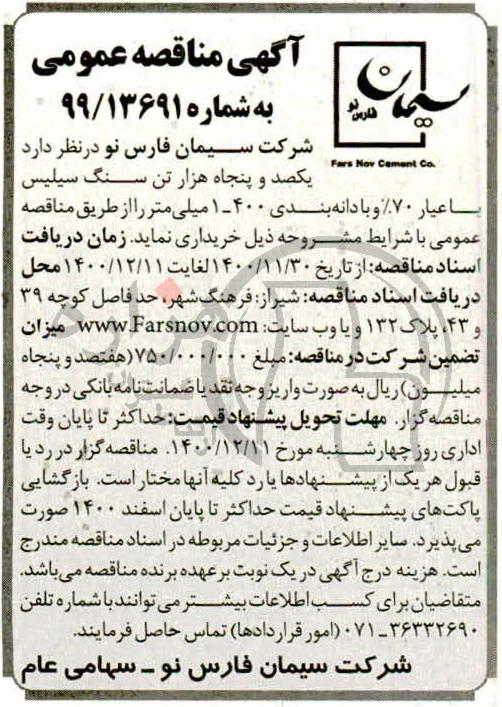 آگهی مناقصه عمومی
به شماره ۹۹/۱۳۶۹۱
سیمان
فارس نو
Fars Nov Cement Co.
شرکت سیمان فارس نو درنظر دارد
یکصد و پنجاه هزار تن سنگ سیلیس
با عیار ۷۰٪ و با دانه بندی ۴۰۰-۱ میلی متر را از طریق مناقصه
عمومی با شرایط مشروحه ذیل خریداری نماید. زمان دریافت
اسناد مناقصه: از تاریخ ۱۴۰۰/۱۱/۳۰ لغایت ۱۴۰۰/۱۲/۱۱ محل
دریافت اسناد مناقصه: شیراز: فرهنگ شهر، حد فاصل کوچه ۳۹
و ۴۳، پلاک ۱۳۲ و یا وب سایت: www.Farsnov.com میزان
تضمین شرکت در مناقصه: مبلغ ۷۵۰/۰۰۰/۰۰۰ (هفتصد و پنجاه
میلیون) ریال به صورت واریز وجه نقد یا ضمانت نامه بانکی در وجه
مناقصه گزار. مهلت تحویل پیشنهاد قیمت: حداکثر تا پایان وقت
اداری روز چهارشنبه مورخ ۱۴۰۰/۱۲/۱۱. مناقصه گزار در رد یا
قبول هر یک از پیشنهادها یا رد کلیه آنها مختار است. بازگشایی
پاکت های پیشنهاد قیمت حداکثر تا پایان اسفند ۱۴۰۰ صورت
می پذیرد. سایر اطلاعات و جزئیات مربوطه در اسناد مناقصه مندرج
است. هزینه درج آگهی در یک نوبت بر عهده برنده مناقصه می باشد.
متقاضیان برای کسب اطلاعات بیشتر می توانند با شماره تلفن
۳۶۳۳۲۶۹۰-۰۷۱ (امور قراردادها) تماس حاصل فرمایند.
شرکت سیمان فارس نو - سهامی عام